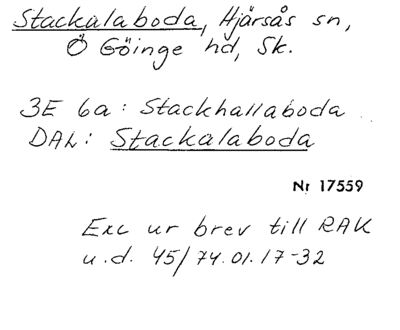 Stackalaboda, Hjärsås sn,
Ö Göinge hd, Sk.
3E 6a: Stackhallaboda
DAL: Stackalaboda
Nr 17559
Exc ur brev till RAK
u.d. 45/74.01.17-32